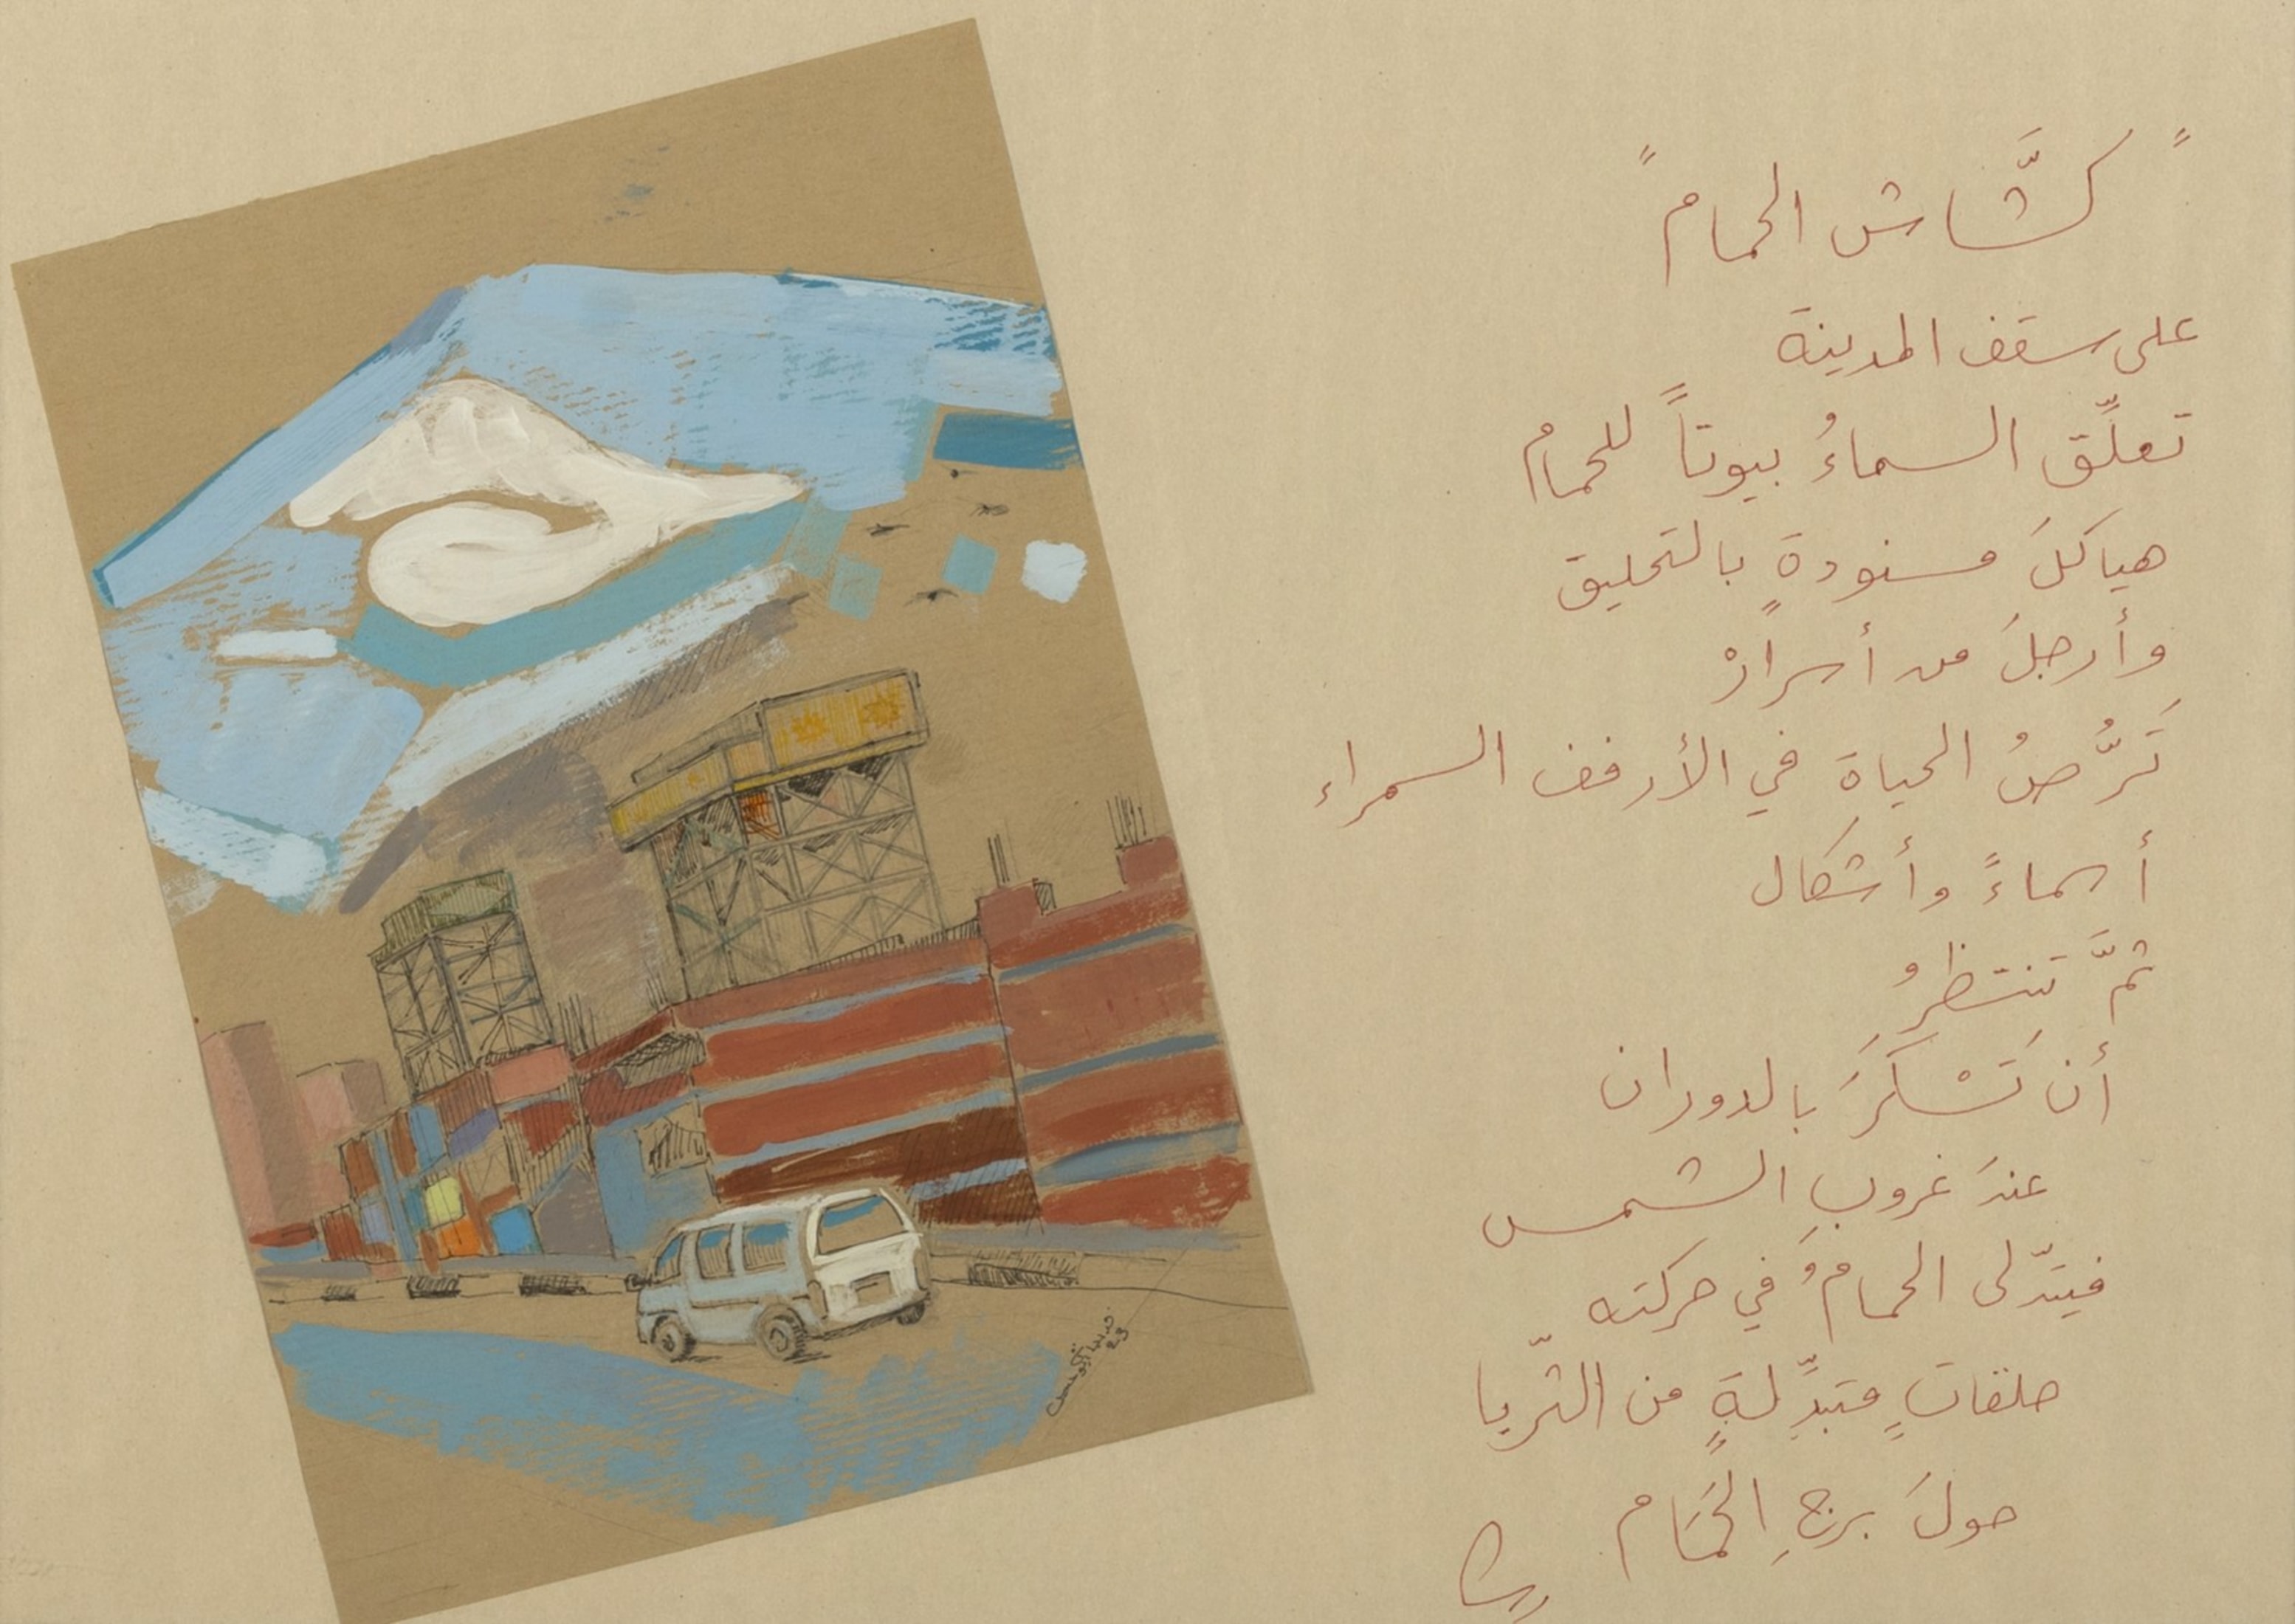 "كشَّاش الحمام"
على سقف المدينة
تعلِّق السماءُ بيوتاً للحمام
هياكلَ مسنودةٍ بالتحليق
وأرجلَ من أسرارْ
تَرُّصُ الحياة في الأرفف السمراء
أسماءً وأشكال
ثمَّ تنتظرُ
أن تَسْكَرَ بالدوران
عندَ غروبِ الشمس
فيتدّلى الحمامُ في حركته
حلقاتٍ متبدِّلةٍ من الثّريا
حولَ برجِ الحَمَام
23